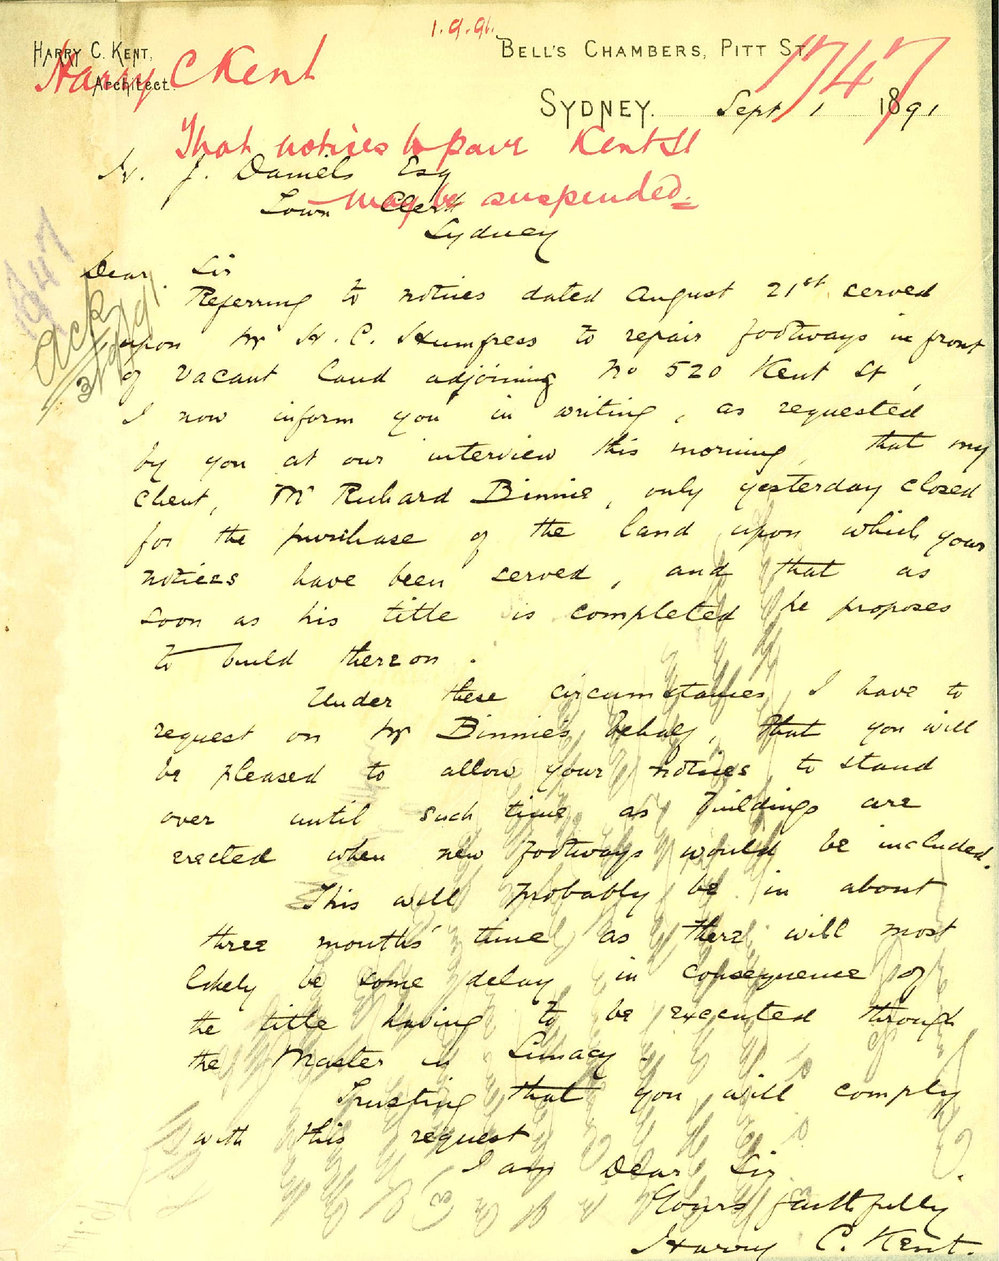 1.9.91.
HARRY C. KENT,
Architect.
BELL'S CHAMBERS, PITT ST.
Harry C Kent
1747
SYDNEY. Sept 1 1891
That notices to pave Kent St
may be suspended.
H. J. Daniels Esq
Town Clerk
Sydney
1747
Ack
3/9/91
Dear Sir
Referring to notices dated August 21st served
upon Mr H. C. Humfress to repair footways in front
of vacant land adjoining No 520 Kent St,
I now inform you in writing, as requested
by you at our interview this morning, that my
client, Mr Richard Binnie, only yesterday closed
for the purchase of the land upon which your
notices have been served, and that as
soon as his title is completed he proposes
to build thereon.
Under these circumstances, I have to
request on Mr Binnie's behalf, that you will
be pleased to allow your notices to stand
over until such time as buildings are
erected when new footways would be included.
This will probably be in about
three months' time as there will most
likely be some delay in consequence of
the title having to be executed through
the Master in Lunacy.
Trusting that you will comply
with this request
I am Dear Sir
Yours faithfully
Harry C. Kent.